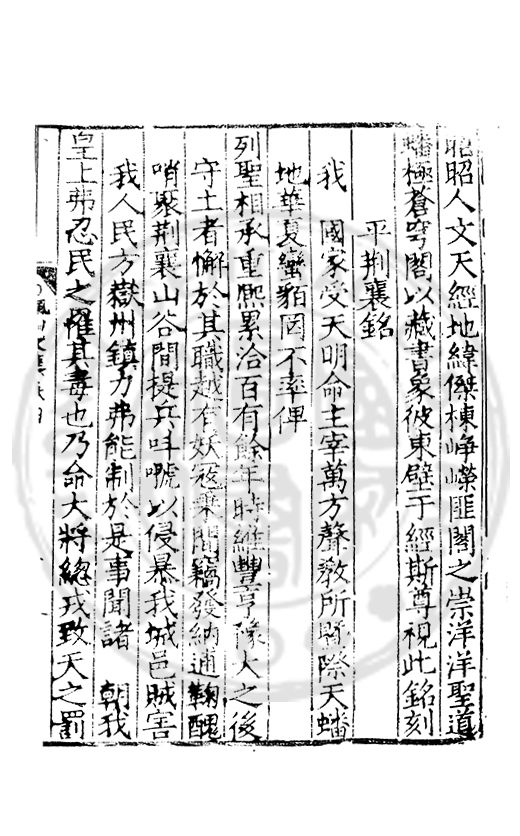 昭昭人文天經地緯傑棟崢嶸匪閣之崇洋洋聖道
蟠極蒼穹閣以藏書象彼東壁于經斯尊視此銘刻
平荆襄銘
我 國家受天明命主宰萬方聲教所曁際天蟠
地華夏蠻貊罔不率俾
列聖相承重熙累洽百有餘年時維豐亨豫大之後
守土者懈於其職越有妖寇乗間竊發納逋鞠醜
哨聚荆襄山谷間提兵呌嘷以侵暴我城邑賊害
我人民方嶽州鎮力弗能制於是事聞諸 朝我
皇上弗忍民之罹其毒也乃命大將緫戎致天之罰